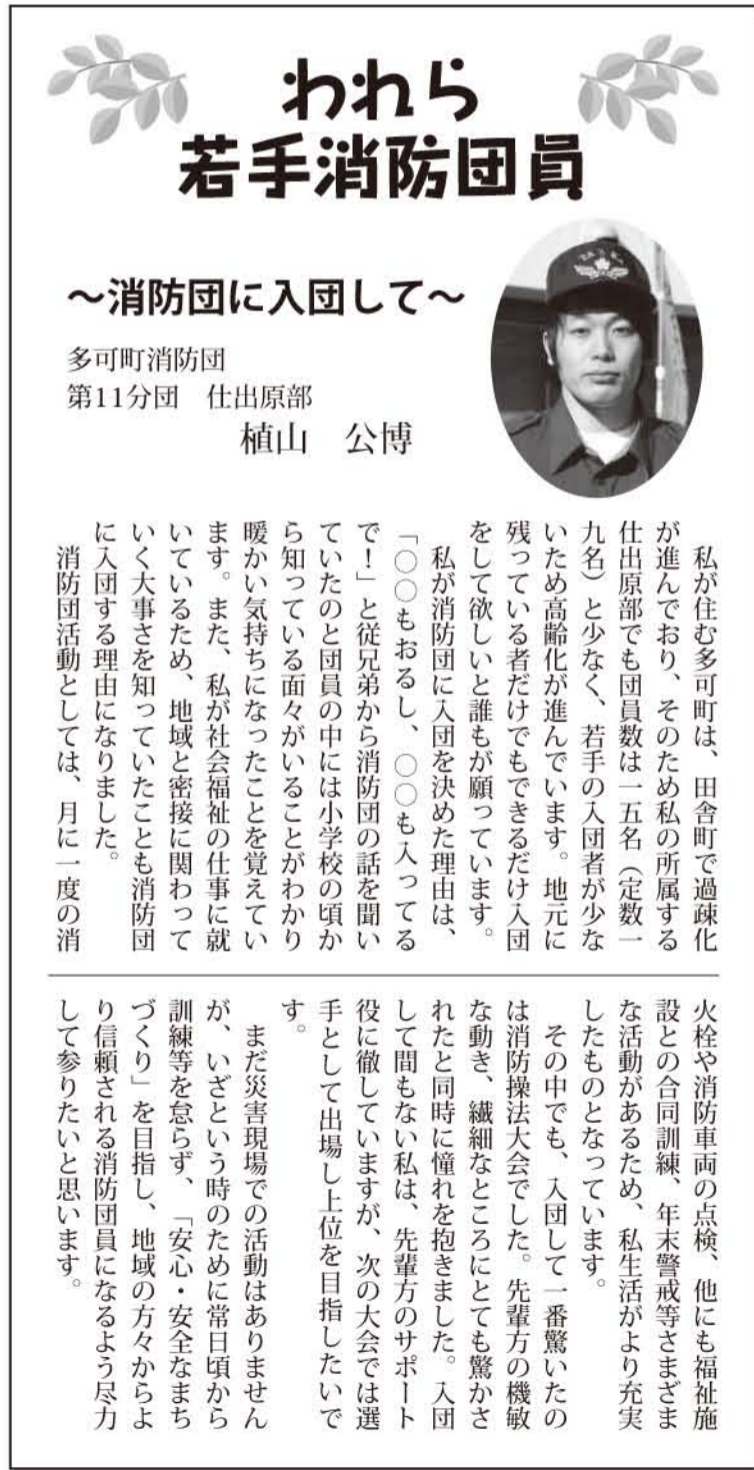 われら
若手消防団員
～消防団に入団して～
多可町消防団
第11分団　仕出原部
植山　公博
私が住む多可町は、田舎町で過疎化
が進んでおり、そのため私の所属する
仕出原部でも団員数は一五名（定数一
九名）と少なく、若手の入団者が少な
いため高齢化が進んでいます。地元に
残っている者だけでもできるだけ入団
をして欲しいと誰もが願っています。
私が消防団に入団を決めた理由は、
「〇〇もおるし、〇〇も入ってる
で！」と従兄弟から消防団の話を聞い
ていたのと団員の中には小学校の頃か
ら知っている面々がいることがわかり
暖かい気持ちになったことを覚えてい
ます。また、私が社会福祉の仕事に就
いているため、地域と密接に関わって
いく大事さを知っていたことも消防団
に入団する理由になりました。
消防団活動としては、月に一度の消
火栓や消防車両の点検、他にも福祉施
設との合同訓練、年末警戒等さまざま
な活動があるため、私生活がより充実
したものとなっています。
その中でも、入団して一番驚いたの
は消防操法大会でした。先輩方の機敏
な動き、繊細なところにとても驚かさ
れたと同時に憧れを抱きました。入団
して間もない私は、先輩方のサポート
役に徹していますが、次の大会では選
手として出場し上位を目指したいで
す。
まだ災害現場での活動はありません
が、いざという時のために常日頃から
訓練等を怠らず、「安心・安全なまち
づくり」を目指し、地域の方々からよ
り信頼される消防団員になるよう尽力
して参りたいと思います。